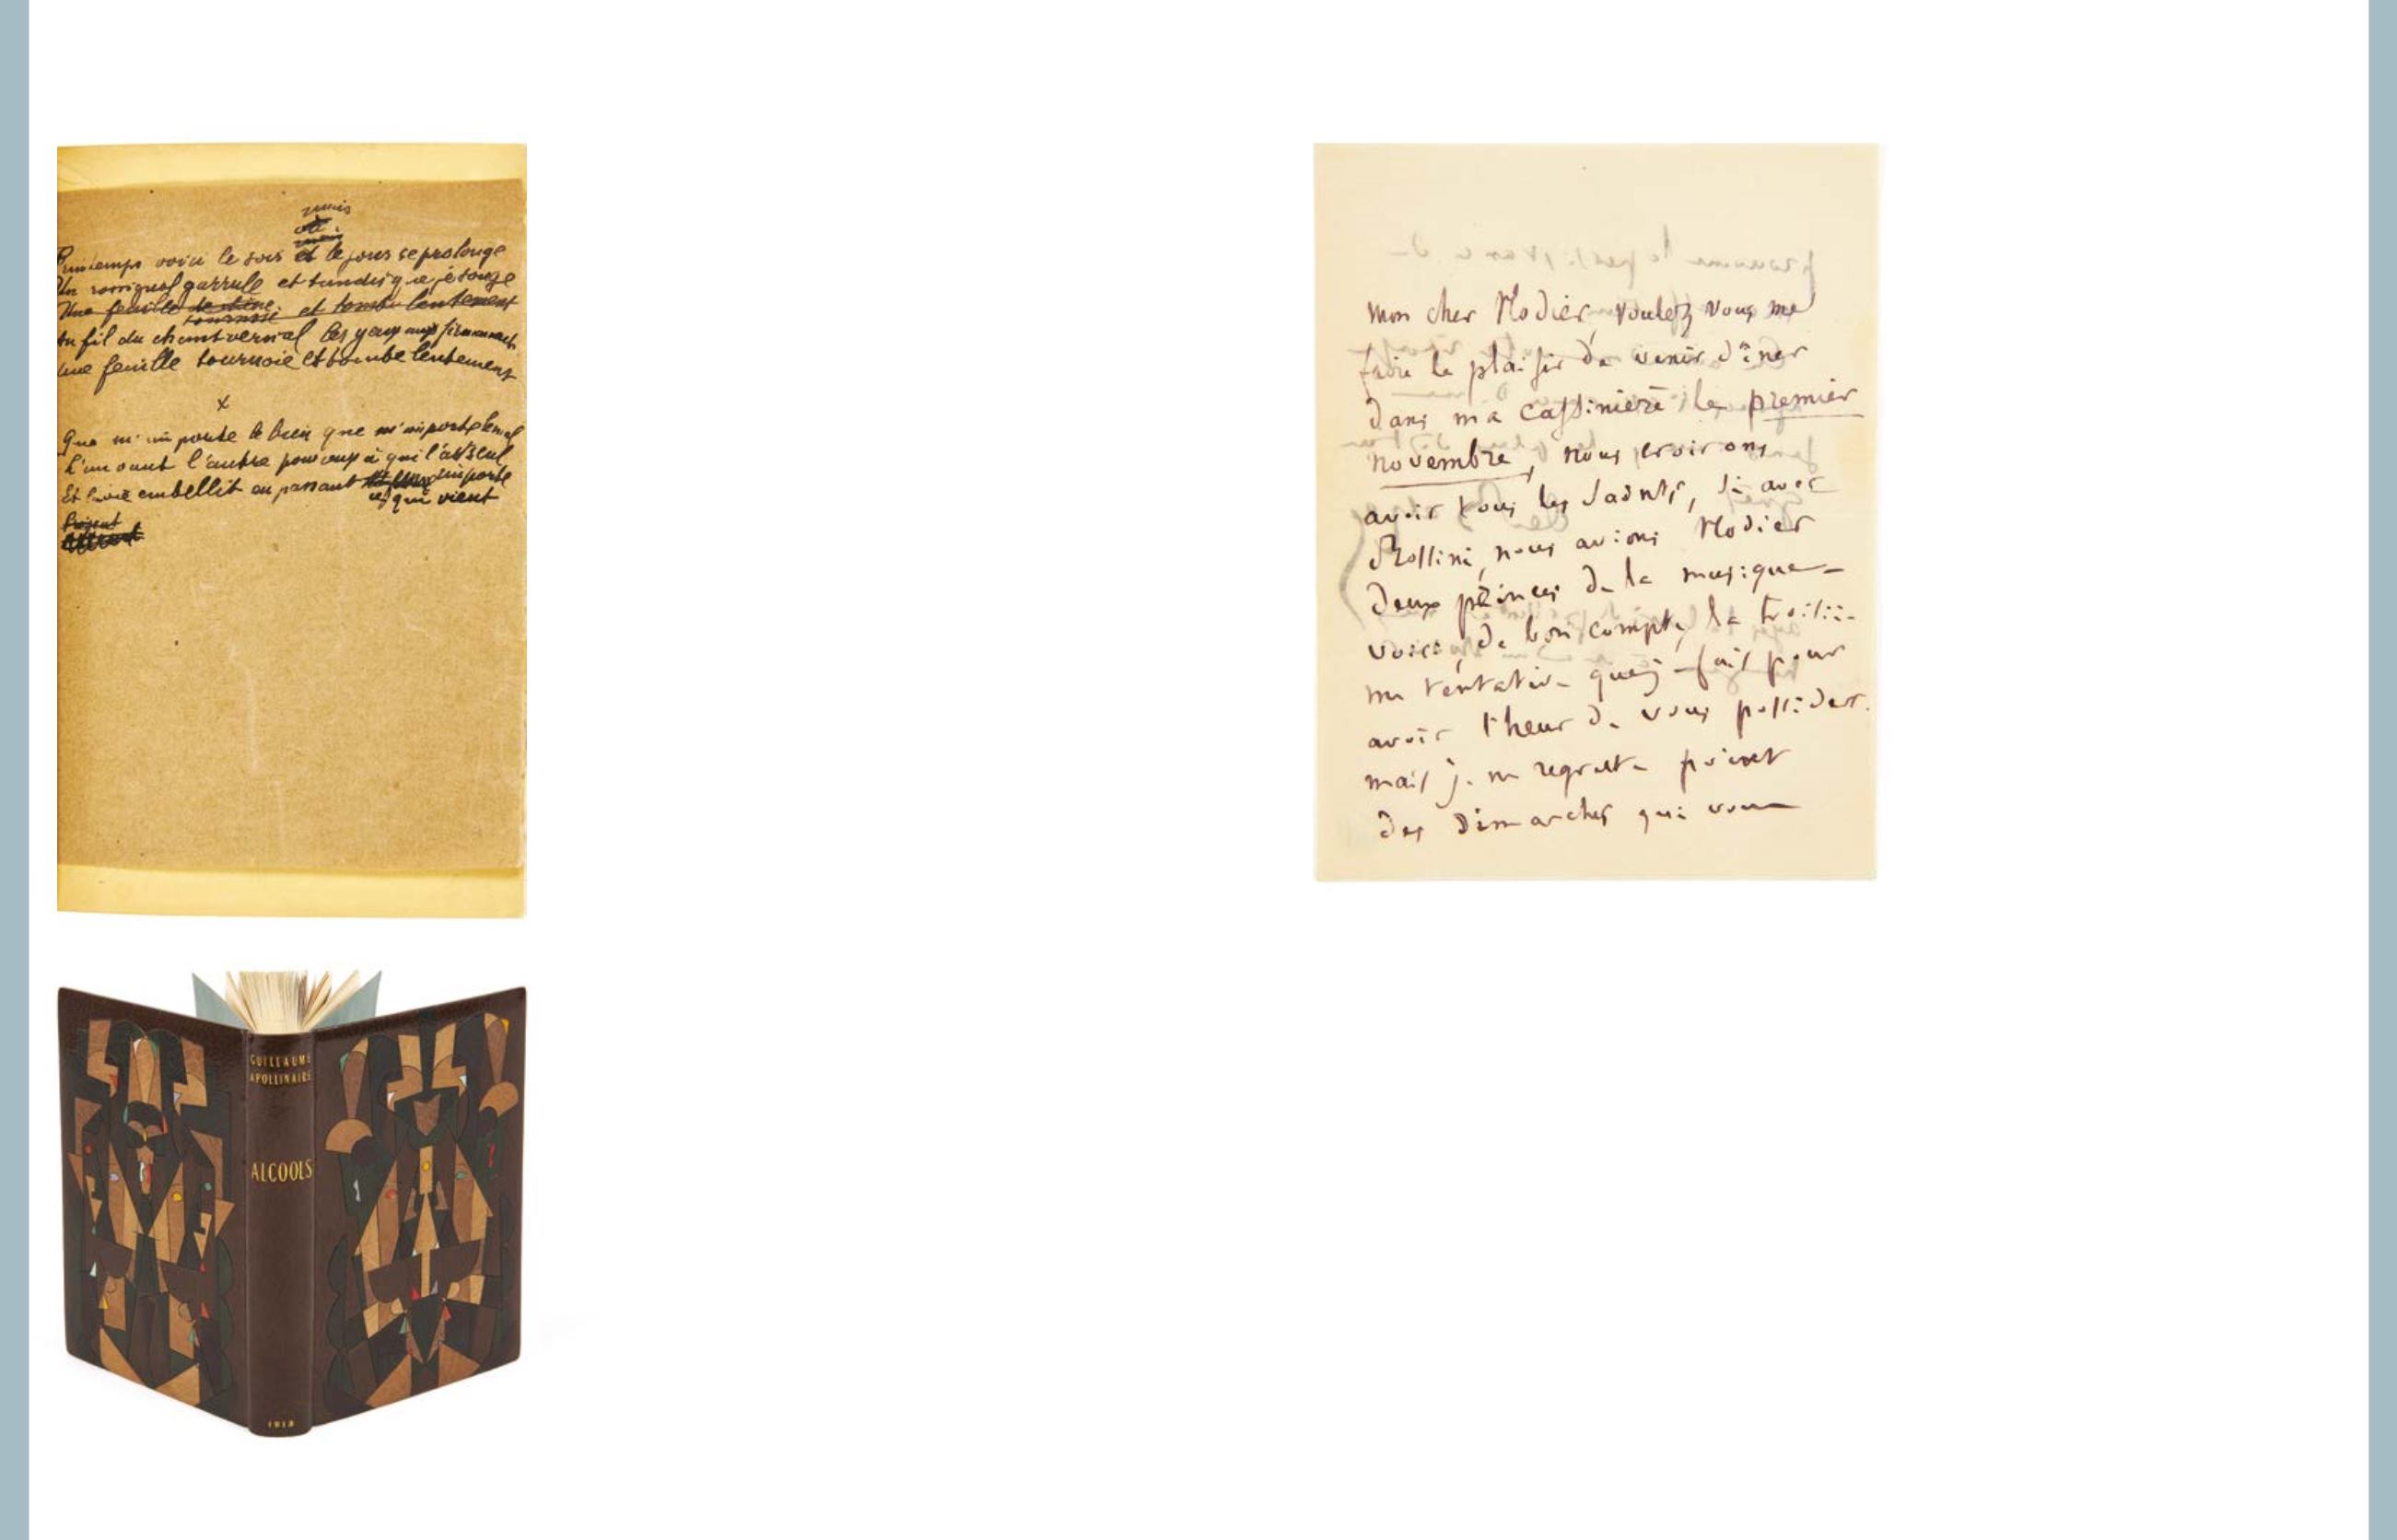 mais
Printemps voici le soir et le jour se prolonge
Un rossignol garrule et tandis que je songe
Une feuille et tombe lentement
Au fil du chant vernal les yeux aux firmaments
Une feuille tournoie et tombe lentement
x
Que m'importe le bien que m'importe le mal
L'un vaut l'autre pour
Et embellit en passant n'importe
qui vient
GUILLAUME
APOLLINAIRE
ALCOOLS
1913
mon cher Nodier, voulez vous me
faire le plaisir de venir dîner
dans ma Cassinière le premier
novembre, nous croirons
avoir tous les Saints, si avec
Rossini, nous avions Nodier
deux princes de la musique
voici, de bon compte, la troisiè-
me tentative que je fais pour
avoir l'heur de vous posséder.
mais je ne regrette point
des dimarches qui vous